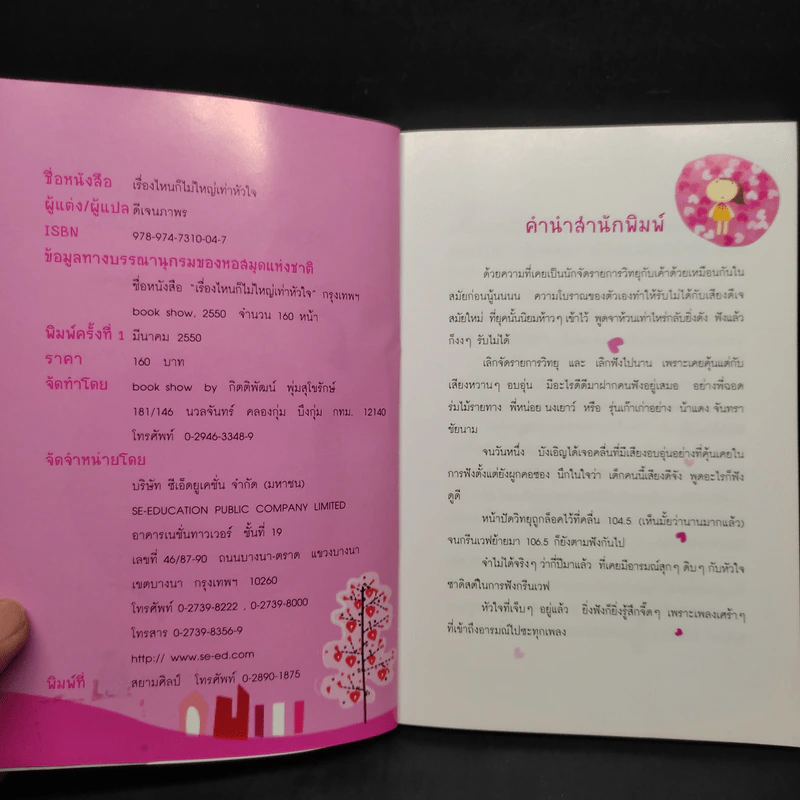 ชื่อหนังสือ เรื่องไหนก็ไม่ใหญ่เท่าหัวใจ
ผู้แต่ง/ผู้แปล ดีเจนภาพร
ISBN 978-974-7310-04-7
ข้อมูลทางบรรณานุกรมของหอสมุดแห่งชาติ
ชื่อหนังสือ "เรื่องไหนก็ไม่ใหญ่เท่าหัวใจ" กรุงเทพฯ
book show, 2550 จำนวน 160 หน้า
พิมพ์ครั้งที่ 1 มีนาคม 2550
ราคา 160 บาท
จัดทำโดย book show by กิตติพัฒน์ พุ่มสุโขรักษ์
181/146 นวลจันทร์ คลองกุ่ม บึงกุ่ม กทม. 12140
โทรศัพท์ 0-2946-3348-9
จัดจำหน่ายโดย
บริษัท ซีเอ็ดยูเคชั่น จำกัด (มหาชน)
SE-EDUCATION PUBLIC COMPANY LIMITED
อาคารเนชั่นทาวเวอร์ ชั้นที่ 19
เลขที่ 46/87-90 ถนนบางนา-ตราด แขวงบางนา
เขตบางนา กรุงเทพฯ 10260
โทรศัพท์ 0-2739-8222 , 0-2739-8000
โทรสาร 0-2739-8356-9
http:// www.se-ed.com
พิมพ์ที่ สยามศิลป์ โทรศัพท์ 0-2890-1875
คำนำสำนักพิมพ์
ด้วยความที่เคยเป็นนักจัดรายการวิทยุกับเค้าด้วยเหมือนกันใน
สมัยก่อนนู้นนนน ความโบราณของตัวเองทำให้รับไม่ได้กับเสียงดีเจ
สมัยใหม่ ที่ยุคนั้นนิยมห้าวๆ เข้าไว้ พูดจาห้วนเท่าไหร่กลับยิ่งดัง ฟังแล้ว
ก็งงๆ รับไม่ได้
เลิกจัดรายการวิทยุ และ เลิกฟังไปนาน เพราะเคยคุ้นแต่กับ
เสียงหวานๆ อบอุ่น มีอะไรดีดีมาฝากคนฟังอยู่เสมอ อย่างพี่ฉอด
ร่มไม้รายทาง พี่หน่อย นงเยาว์ หรือ รุ่นเก๋าเก่าอย่าง น้าแดง จันทรา
ชัยนาม
จนวันหนึ่ง บังเอิญได้เจอคลื่นที่มีเสียงอบอุ่นอย่างที่คุ้นเคยใน
การฟังตั้งแต่ยังผูกคอซอง นึกในใจว่า เด็กคนนี้เสียงดีจัง พูดอะไรก็ฟัง
ดูดี
หน้าปัดวิทยุถูกล็อคไว้ที่คลื่น 104.5 (เห็นมั้ยว่านานมากแล้ว)
จนกรีนเวฟย้ายมา 106.5 ก็ยังตามฟังกันไป
จำไม่ได้จริงๆ ว่ากี่ปีมาแล้ว ที่เคยมีอารมณ์สุกๆ ดิบๆ กับหัวใจ
ซาดิสต์ในการฟังกรีนเวฟ
หัวใจที่เจ็บๆ อยู่แล้ว ยิ่งฟังก็ยิ่งรู้สึกจี๊ดๆ เพราะเพลงเศร้าๆ
ที่เข้าถึงอารมณ์ไปซะทุกเพลง